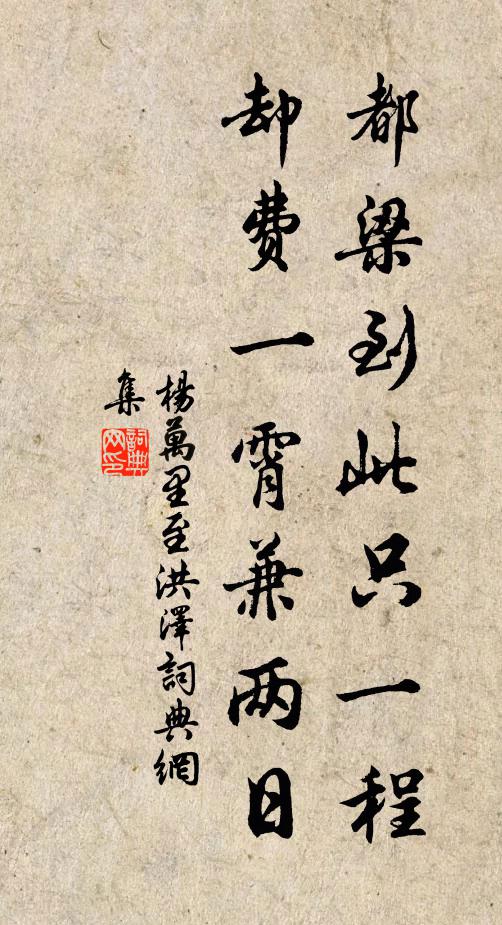 都梁到此只一程
却费一霄兼两日
楊萬里至洪澤詞典網
集
詞典
网印